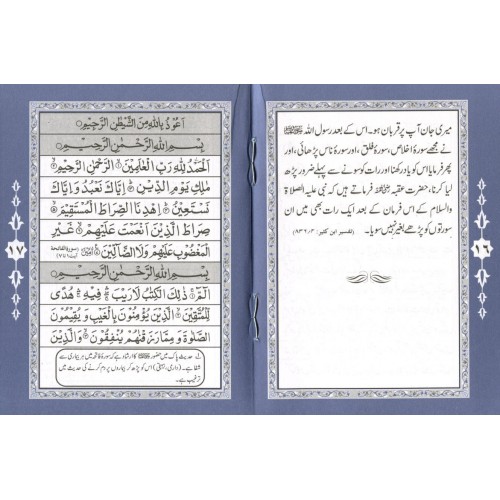 میری جان آپ پر قربان ہو۔ اس کے بعد رسول اللہ ﷺ
نے مجھے سورۂ اخلاص، سورۂ فلق، اور سورۂ ناس پڑھائی، اور
پھر فرمایا اس کو یاد رکھنا اور رات کو سونے سے پہلے ضرور پڑھ
لیا کرنا، حضرت عقبہ رضی اللہ عنہ فرماتے ہیں کہ نبی علیہ الصلاۃ
والسلام کے اس فرمان کے بعد ایک رات بھی میں ان
سورتوں کو پڑھے بغیر نہیں سویا۔ (تفسیر ابن کثیر:
١٦
اَعُوْذُ بِاللّٰهِ مِنَ الشَّيْطٰنِ الرَّجِيْمِ
بِسْمِ اللّٰهِ الرَّحْمٰنِ الرَّحِيْمِ
اَلْحَمْدُ لِلّٰهِ رَبِّ الْعٰلَمِيْنَ الرَّحْمٰنِ الرَّحِيْمِ
مٰلِكِ يَوْمِ الدِّيْنِ اِيَّاكَ نَعْبُدُ وَاِيَّاكَ
نَسْتَعِيْنُ اِهْدِنَا الصِّرَاطَ الْمُسْتَقِيْمَ
صِرَاطَ الَّذِيْنَ اَنْعَمْتَ عَلَيْهِمْ غَيْرِ
الْمَغْضُوْبِ عَلَيْهِمْ وَلَا الضَّآلِّيْنَ
بِسْمِ اللّٰهِ الرَّحْمٰنِ الرَّحِيْمِ
الٓمّٓ ذٰلِكَ الْكِتٰبُ لَا رَيْبَ فِيْهِ هُدًى
لِّلْمُتَّقِيْنَ الَّذِيْنَ يُؤْمِنُوْنَ بِالْغَيْبِ وَيُقِيْمُوْنَ
الصَّلٰوةَ وَمِمَّا رَزَقْنٰهُمْ يُنْفِقُوْنَ وَالَّذِيْنَ
حدیث پاک میں حضور ﷺ کا ارشاد ہے کہ سورۂ فاتحہ میں ہر بیماری سے
شفا ہے۔ (دارمی، بیہقی) اس کو پڑھ کر بیماروں پر دم کرنے کی حدیث میں
ترغیب ہے۔
١٧